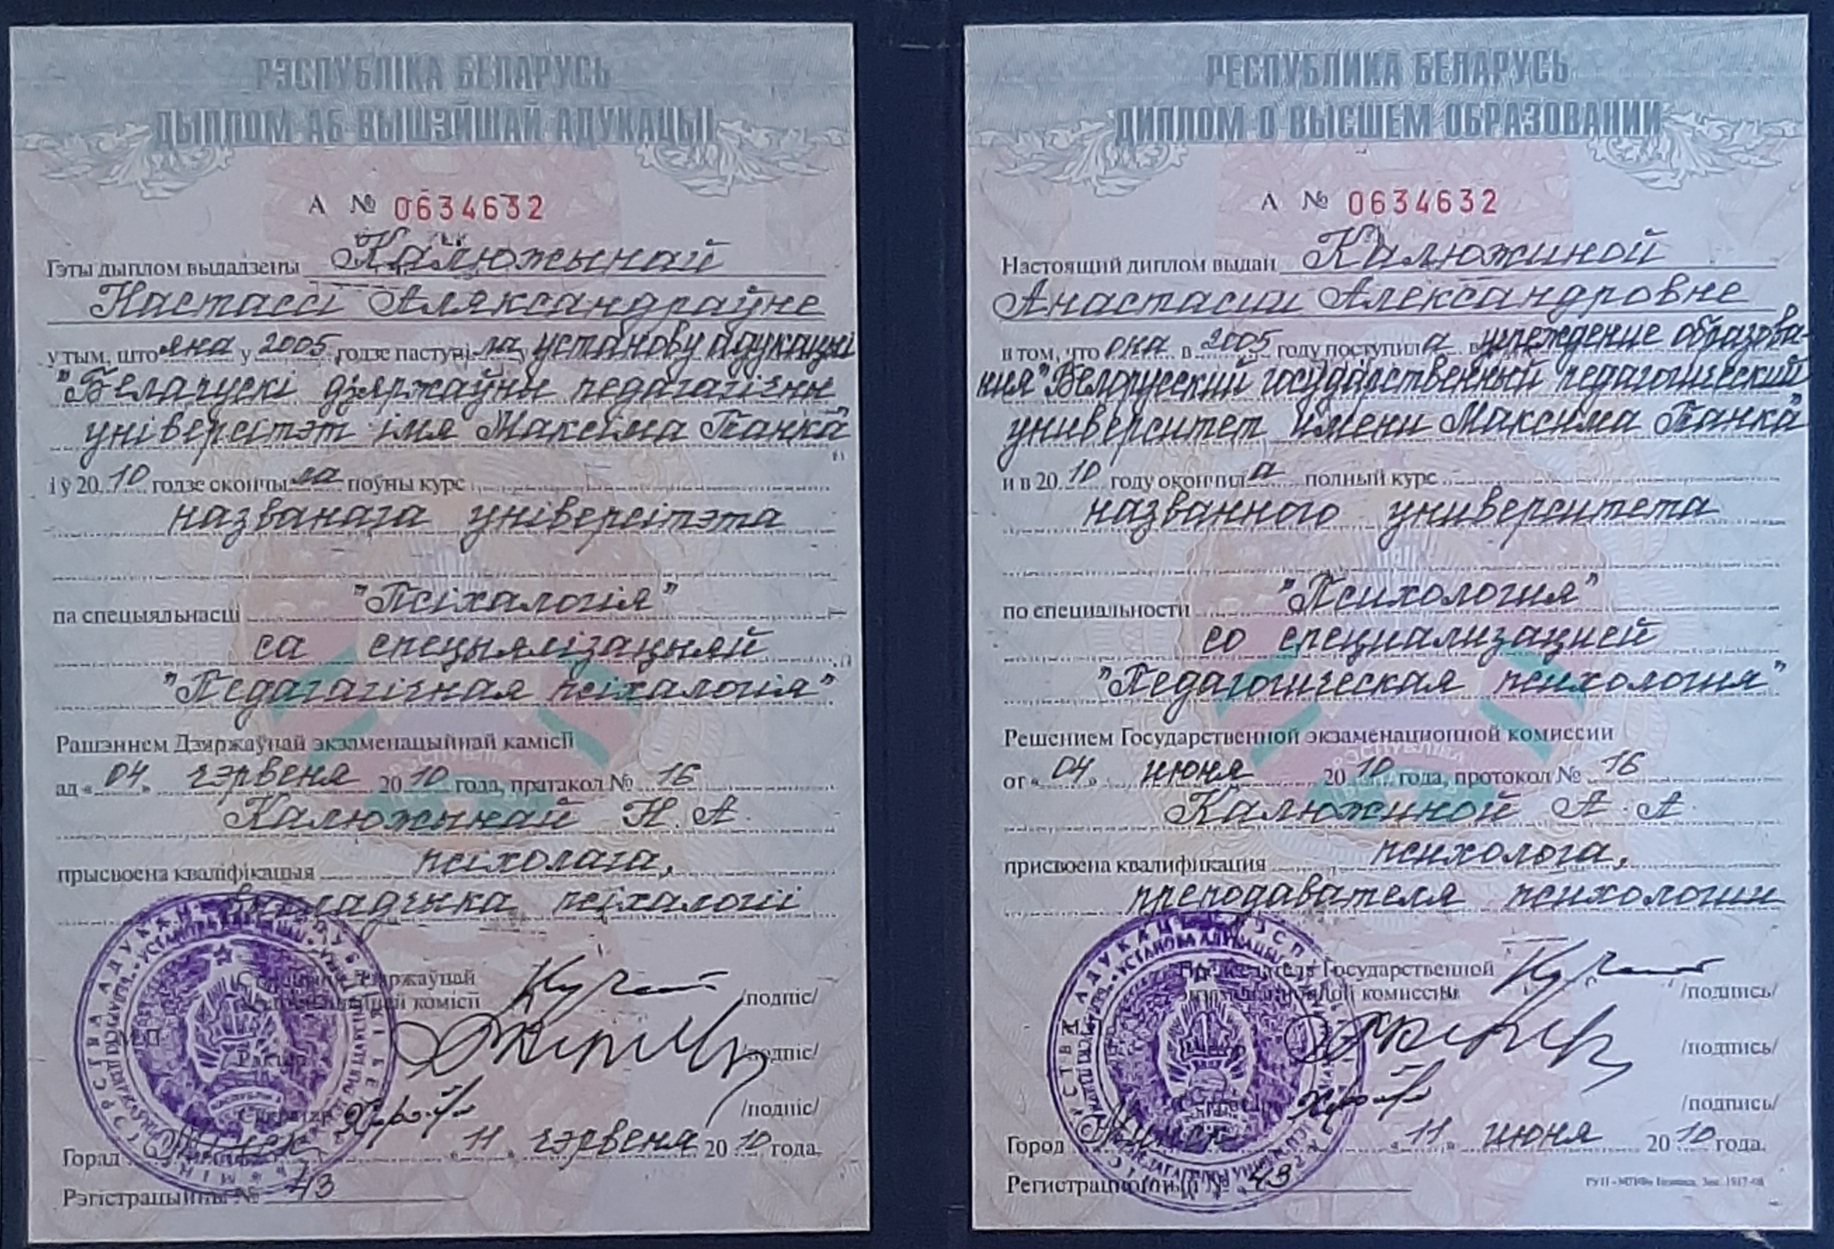 РЭСПУБЛІКА БЕЛАРУСЬ
ДЫПЛОМ АБ ВЫШЭЙШАЙ АДУКАЦЫІ
А № 0634632
Гэты дыплом выдадзены Калюжынай
Настассі Аляксандраўне
у тым, што яна у 2005 годзе паступіла у установу адукацыі
"Беларускі дзяржаўны педагагічны
універсітэт імя Максіма Танка"
і ў 2010 годзе скончыла поўны курс
названага універсітэта
па спецыяльнасці "Псіхалогія"
са спецыялізацыяй
"Педагагічная псіхалогія"
Рашэннем Дзяржаўнай экзаменацыйнай камісіі
ад «04» чэрвеня 2010 года, пратакол № 16
Калюжынай Н. А.
прысвоена кваліфікацыя псіхолага,
выкладчыка псіхалогіі
Старшыня Дзяржаўнай
экзаменацыйнай камісіі /подпіс/
М.П.
Рэктар /подпіс/
Сакратар /подпіс/
Горад Мінск «11» чэрвеня 2010 года.
Рэгістрацыйны № 43
РЕСПУБЛИКА БЕЛАРУСЬ
ДИПЛОМ О ВЫСШЕМ ОБРАЗОВАНИИ
А № 0634632
Настоящий диплом выдан Калюжиной
Анастасии Александровне
в том, что она в 2005 году поступила в учреждение образова-
ния "Белорусский государственный педагогический
университет имени Максима Танка"
и в 2010 году окончила полный курс
названного университета
по специальности "Психология"
со специализацией
"Педагогическая психология"
Решением Государственной экзаменационной комиссии
от «04» июня 2010 года, протокол № 16
Калюжиной А. А.
присвоена квалификация психолога,
преподавателя психологии
Председатель Государственной
экзаменационной комиссии /подпись/
/подпись/
Секретарь /подпись/
Город Минск «11» июня 2010 года.
Регистрационный № 43